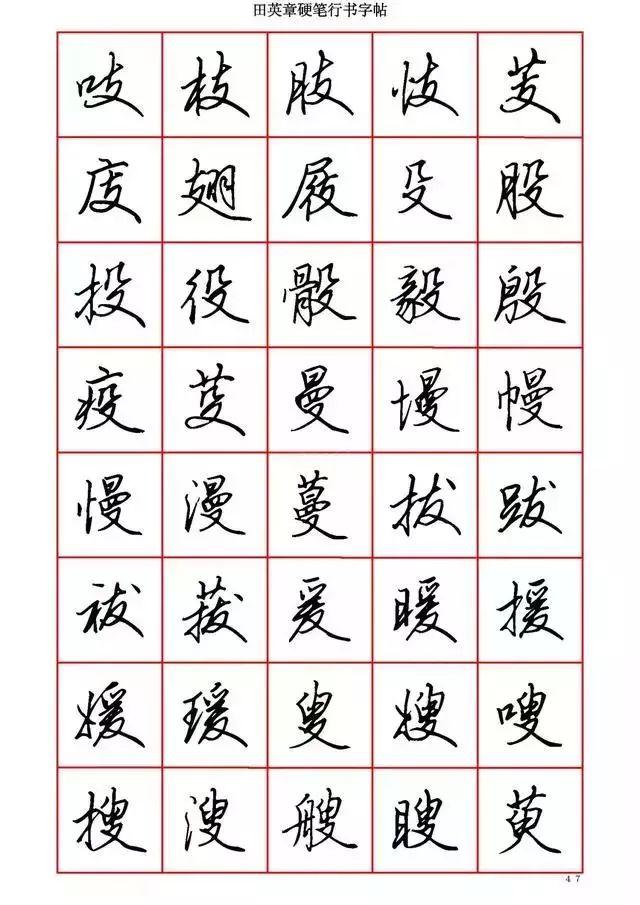 田英章硬笔行书字帖
吱 枝 肢 忮 芰
庋 翅 屐 殳 股
投 役 骰 毅 殷
疫 芟 曼 墁 幔
慢 漫 蔓 拔 跋
祓 菝 爰 暖 援
媛 瑗 叟 嫂 嗖
搜 溲 艘 瞍 萸
47